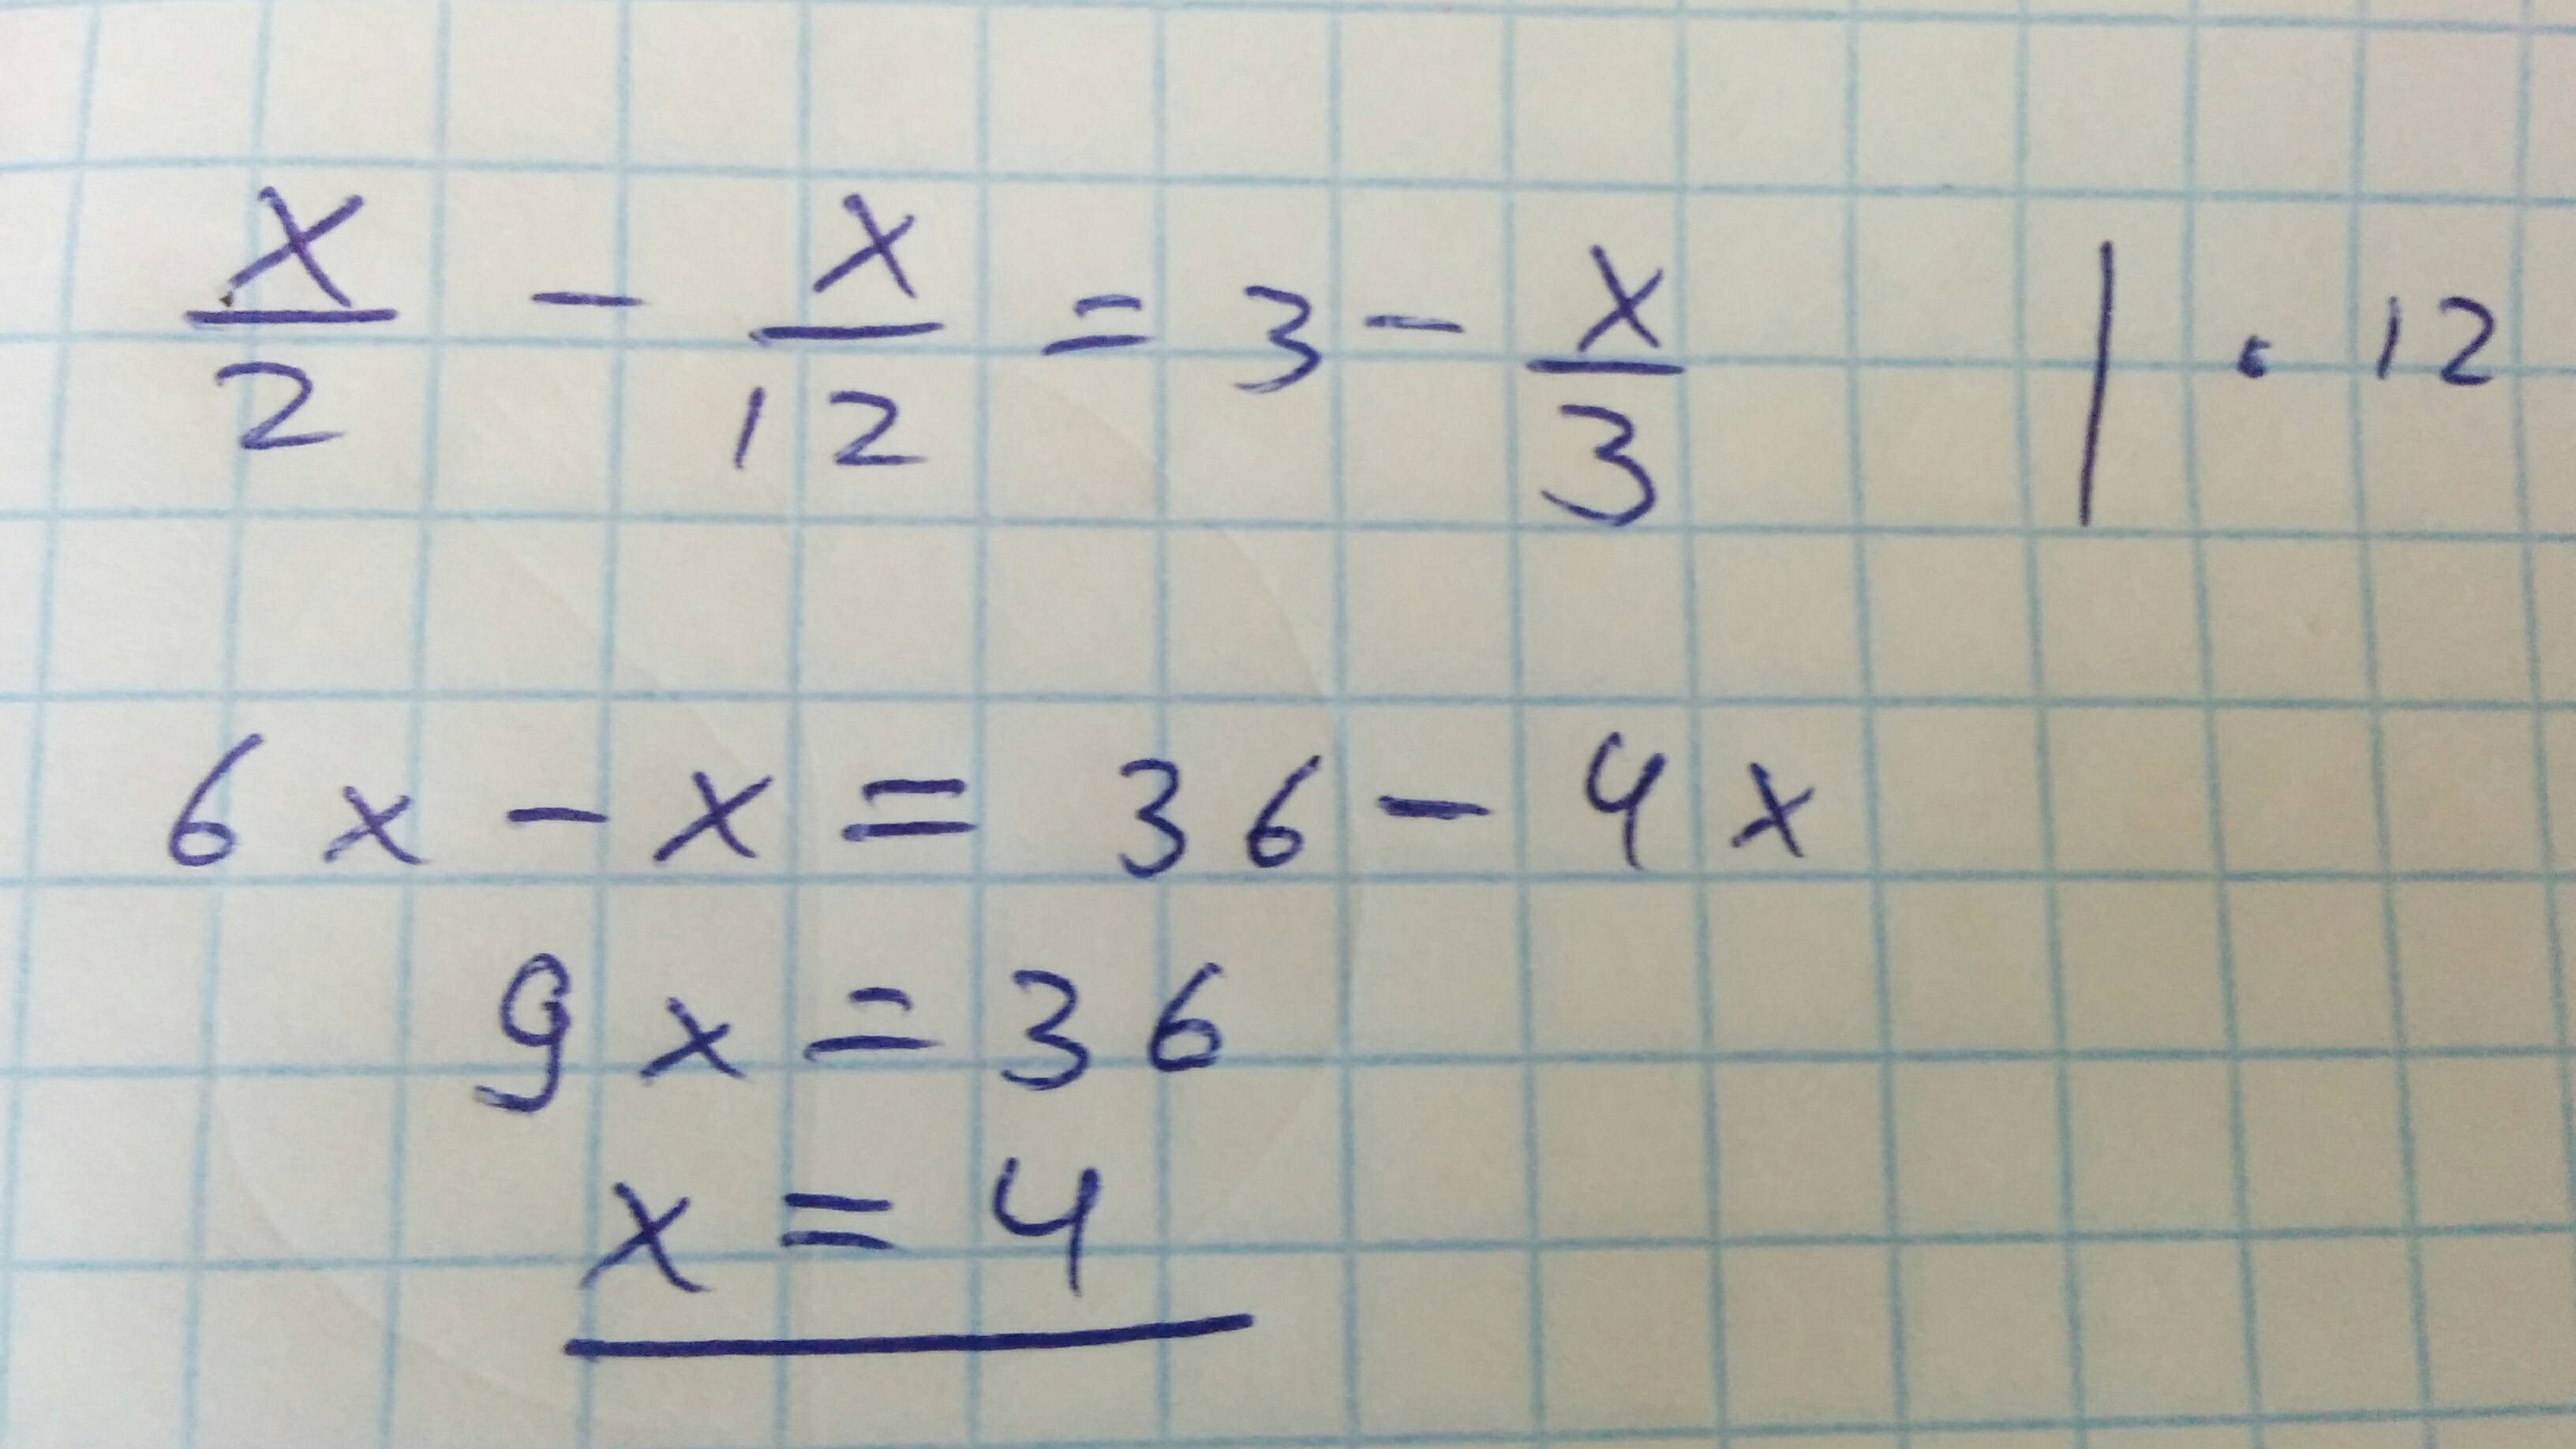 x/2 - x/12 = 3 - x/3 | · 12
6x - x = 36 - 4x
9x = 36
x = 4